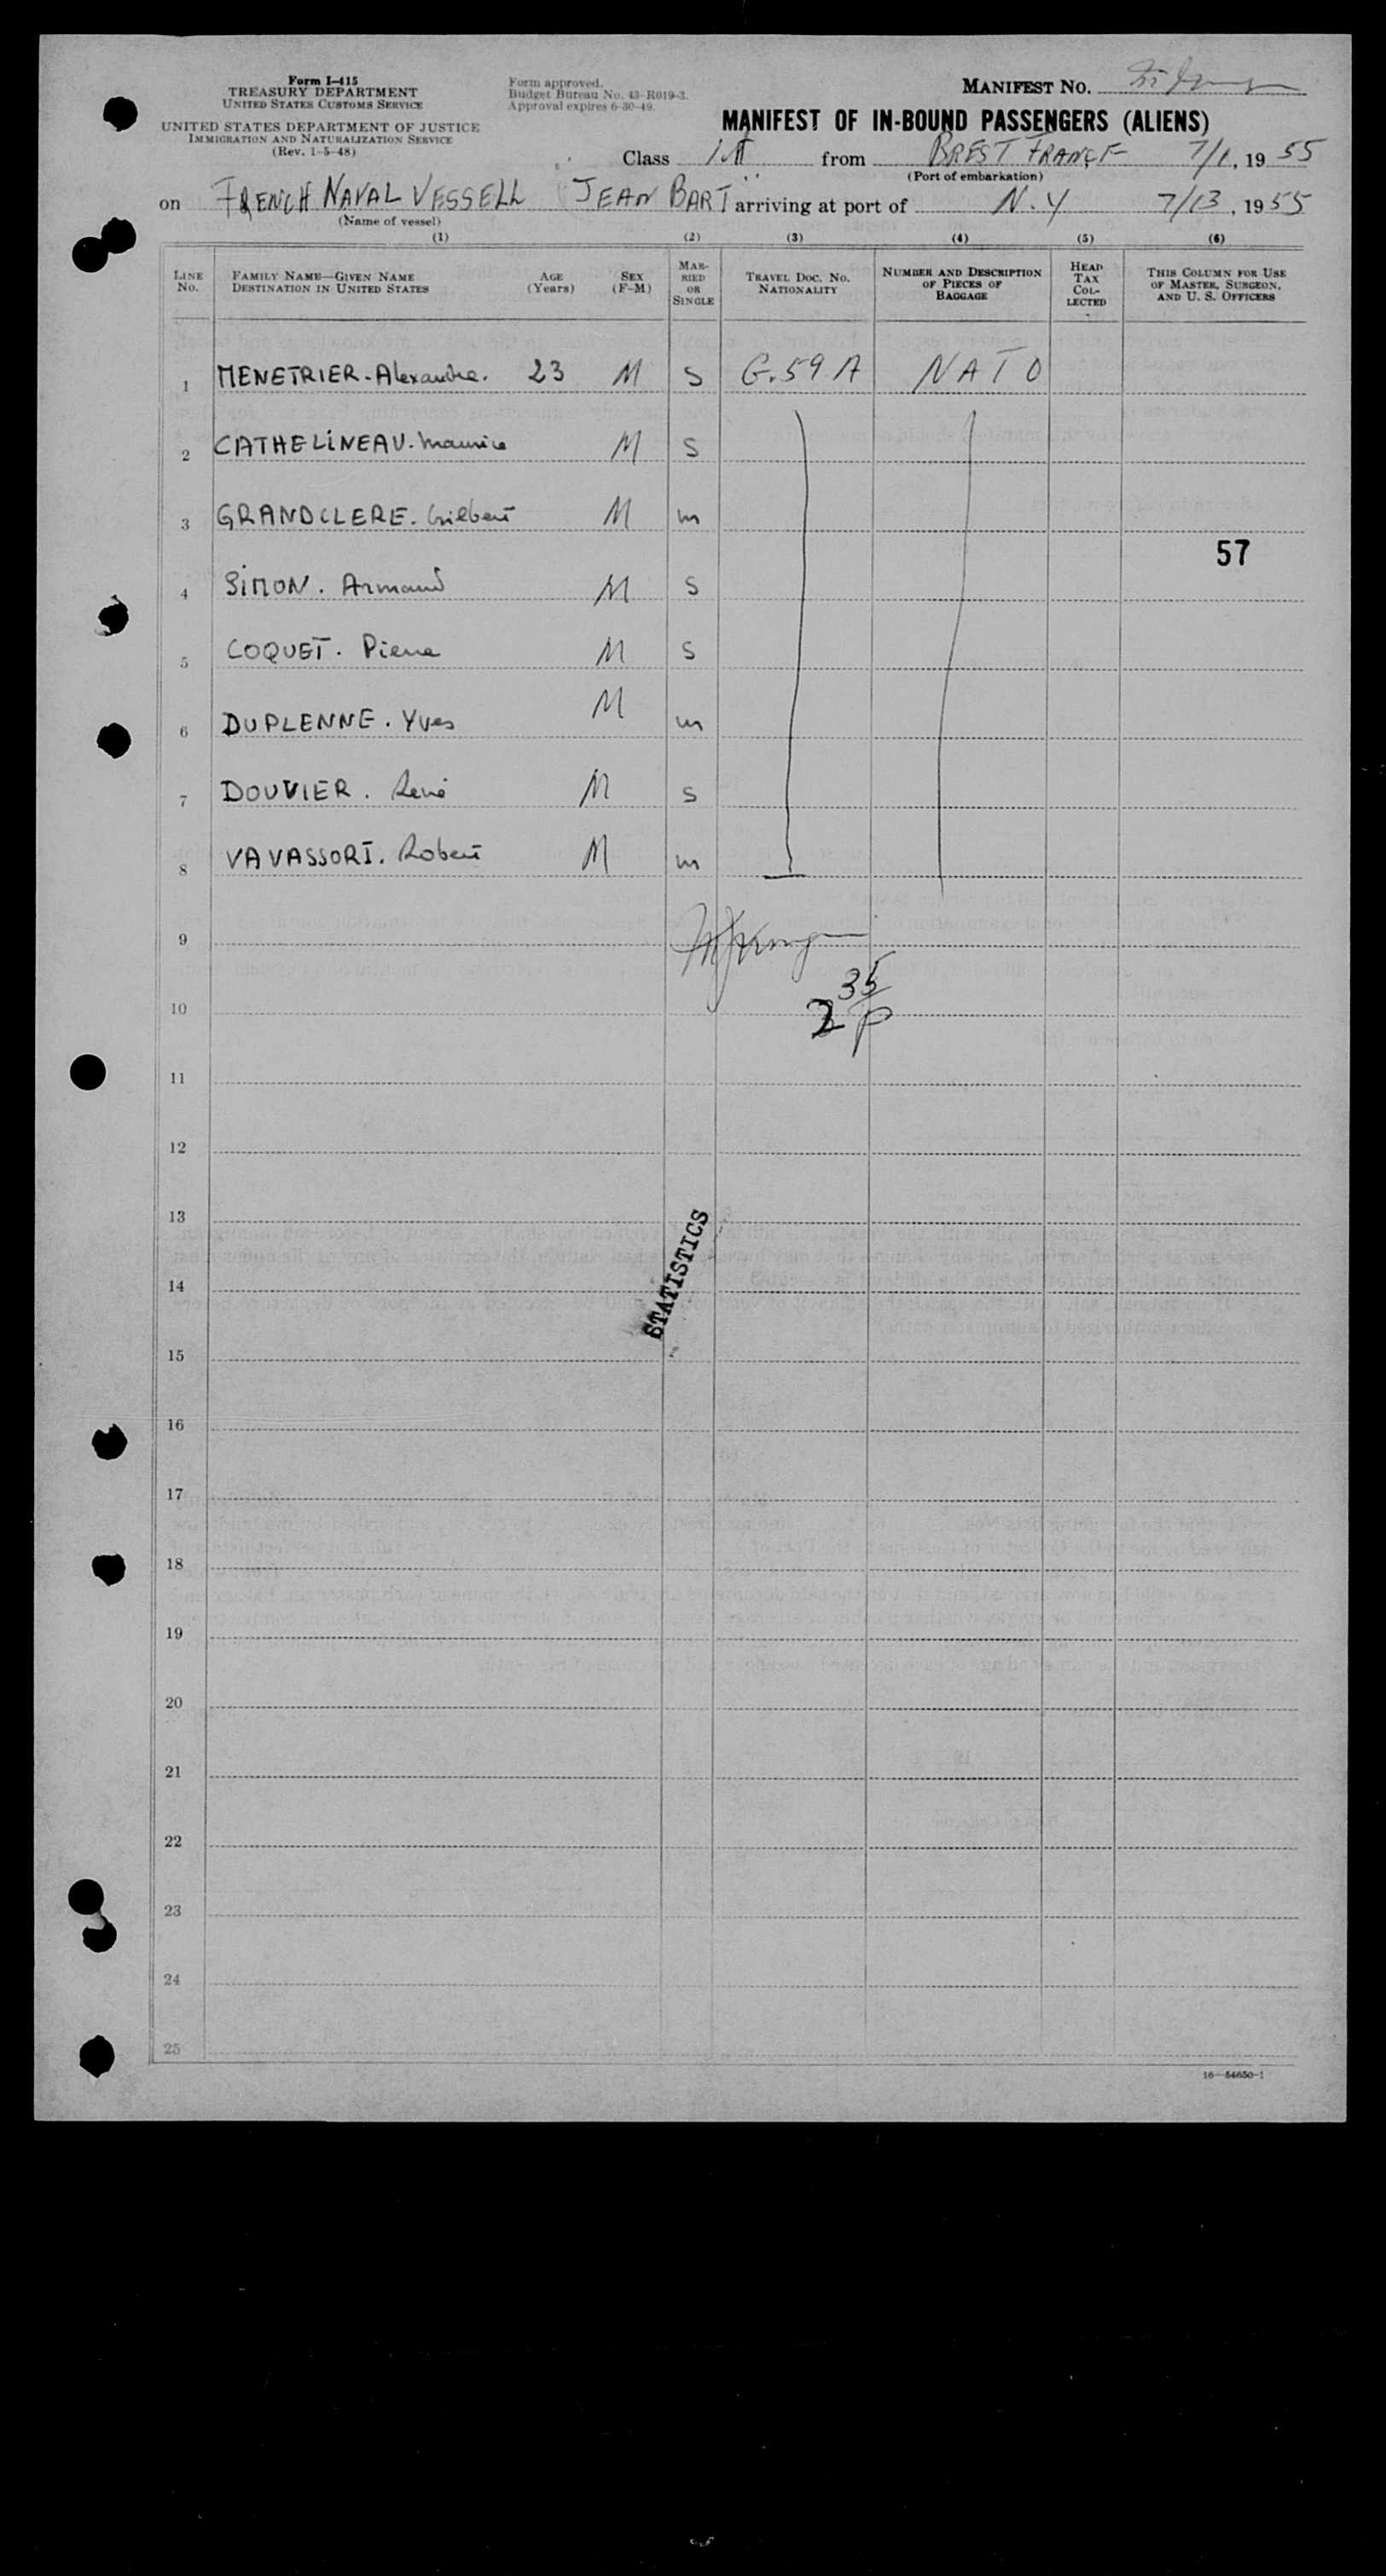 Form I-415
TREASURY DEPARTMENT
UNITED STATES CUSTOMS SERVICE
UNITED STATES DEPARTMENT OF JUSTICE
IMMIGRATION AND NATURALIZATION SERVICE
(Rev. 1-5-48)
Form approved.
Budget Bureau No. 43-R019-3.
Approval expires 6-30-49.
MANIFEST NO.
MANIFEST OF IN-BOUND PASSENGERS (ALIENS)
Class 1st from BREST FRANCE 7/1, 19 55
(Port of embarkation)
on FRENCH NAVAL VESSELL JEAN BART arriving at port of N.Y 7/13, 1955
(Name of vessel)
(1) (2) (3) (4) (5) (6)
LINE No. FAMILY NAME—GIVEN NAME DESTINATION IN UNITED STATES AGE (Years) SEX (F-M) MARRIED OR SINGLE TRAVEL DOC. NO. NATIONALITY NUMBER AND DESCRIPTION OF PIECES OF BAGGAGE HEAD TAX COLLECTED THIS COLUMN FOR USE OF MASTER, SURGEON, AND U. S. OFFICERS
1 MENETRIER-Alexandre. 23 M S G.59A NATO
2 CATHELINEAU. Maurice M S
3 GRANDCLERE. Gilbert M m
57
4 SIMON. Armand M S
5 COQUET. Pierre M S
6 DUPLENNE. Yves M m
7 DOUVIER. René M S
8 VAVASSORI. Robert M m
9
10 2 35 P
11
12
13
STATISTICS
14
15
16
17
18
19
20
21
22
23
24
25
16—54650-1